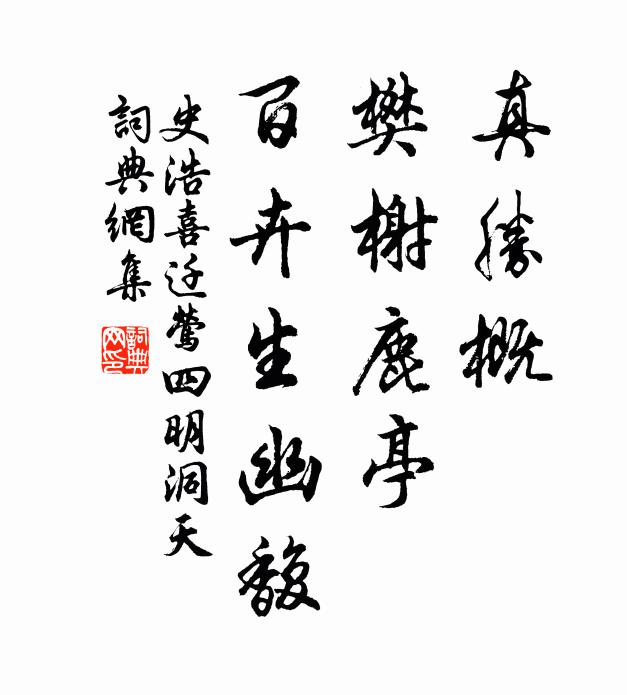 真勝概
樊榭鹿亭
百卉生幽馥
史浩喜迁莺四明洞天
詞典網集
詞典
网印